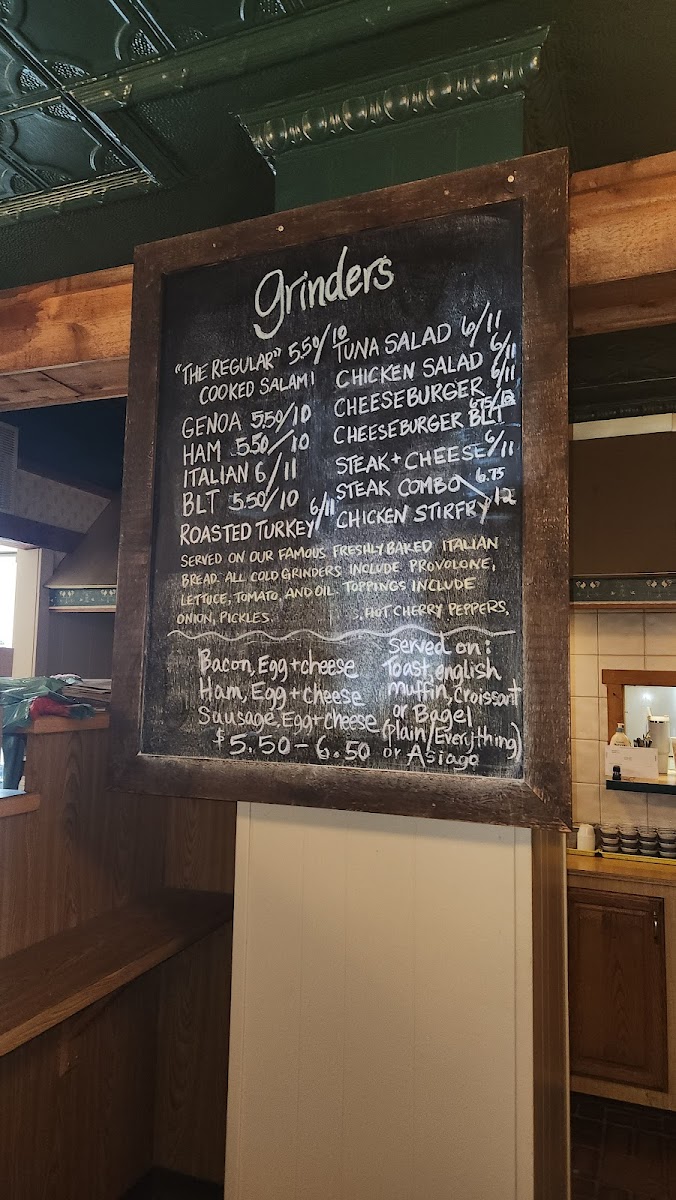 grinders
"THE REGULAR" 5.50/10
COOKED SALAMI
GENOA 5.50/10
HAM 5.50/10
ITALIAN 6/11
BLT 5.50/10
ROASTED TURKEY 6/11
TUNA SALAD 6/11
CHICKEN SALAD 6/11
CHEESEBURGER 6/11
CHEESEBURGER BLT 6.75/12
STEAK + CHEESE 6/11
STEAK COMBO 6.75
CHICKEN STIRFRY 12
SERVED ON OUR FAMOUS FRESHLY BAKED ITALIAN
BREAD. ALL COLD GRINDERS INCLUDE PROVOLONE,
LETTUCE, TOMATO, AND OIL. TOPPINGS INCLUDE
ONION, PICKLES HOT CHERRY PEPPERS.
Bacon, Egg + cheese
Ham, Egg + cheese
Sausage, Egg + cheese
$5.50 - 6.50
served on:
Toast, english
muffin, Croissant
or Bagel
(plain/Everything)
or Asiago